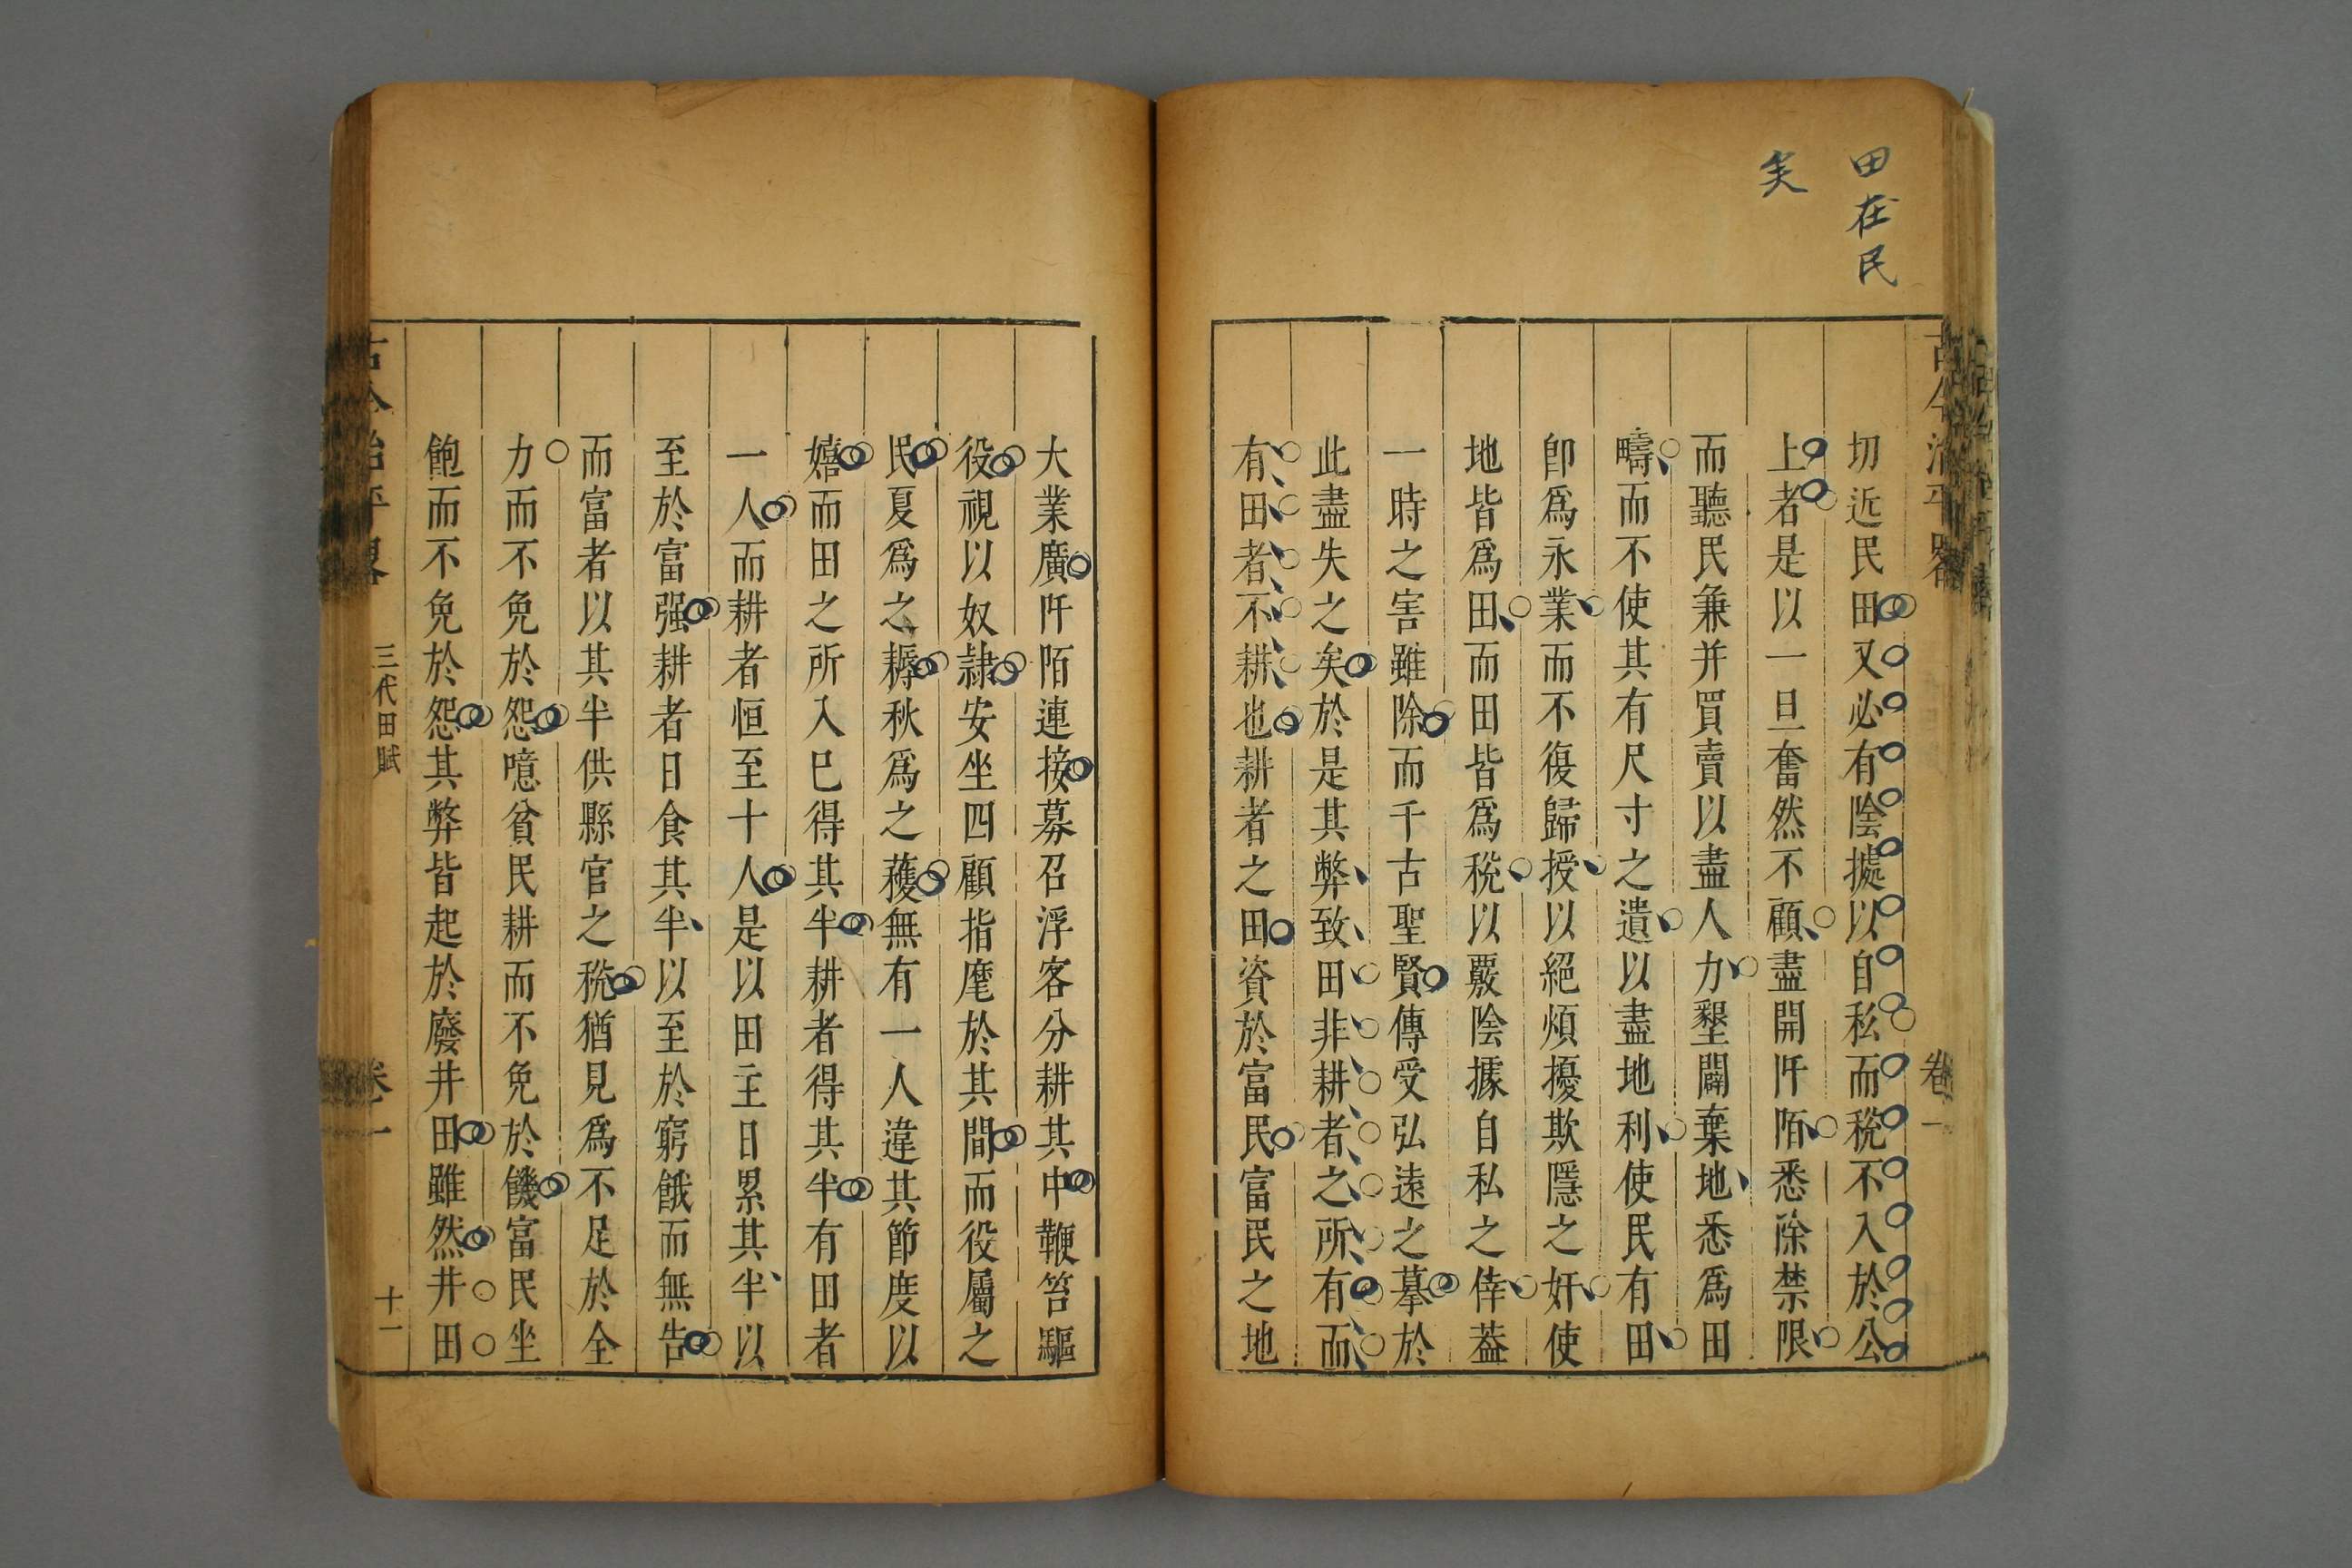 田在民
矣
古今治平畧
卷一
切近民田又必有陰據以自私而稅不入於公
上者是以一旦奮然不顧盡開阡陌悉除禁限
而聽民兼并買賣以盡人力墾闢棄地悉爲田
疇而不使其有尺寸之遺以盡地利使民有田
卽爲永業而不復歸授以絕煩擾欺隱之奸使
地皆爲田而田皆爲稅以覈陰據自私之倖葢
一時之害雖除而千古聖賢傳受弘遠之摹於
此盡失之矣於是其弊致田非耕者之所有而
有田者不耕也耕者之田資於富民富民之地
大業廣阡陌連接募召浮客分耕其中鞭笞驅
役視以奴隷安坐四顧指麾於其間而役屬之
民夏爲之耨秋爲之穫無有一人違其節度以
嬉而田之所入已得其半耕者得其半有田者
一人而耕者恒至十人是以田主日累其半以
至於富强耕者日食其半以至於窮餓而無告
而富者以其半供縣官之稅猶見爲不足於全
力而不免於怨噫貧民耕而不免於饑富民坐
飽而不免於怨其弊皆起於廢井田雖然井田
古今治平畧
三代田賦
卷一
十一